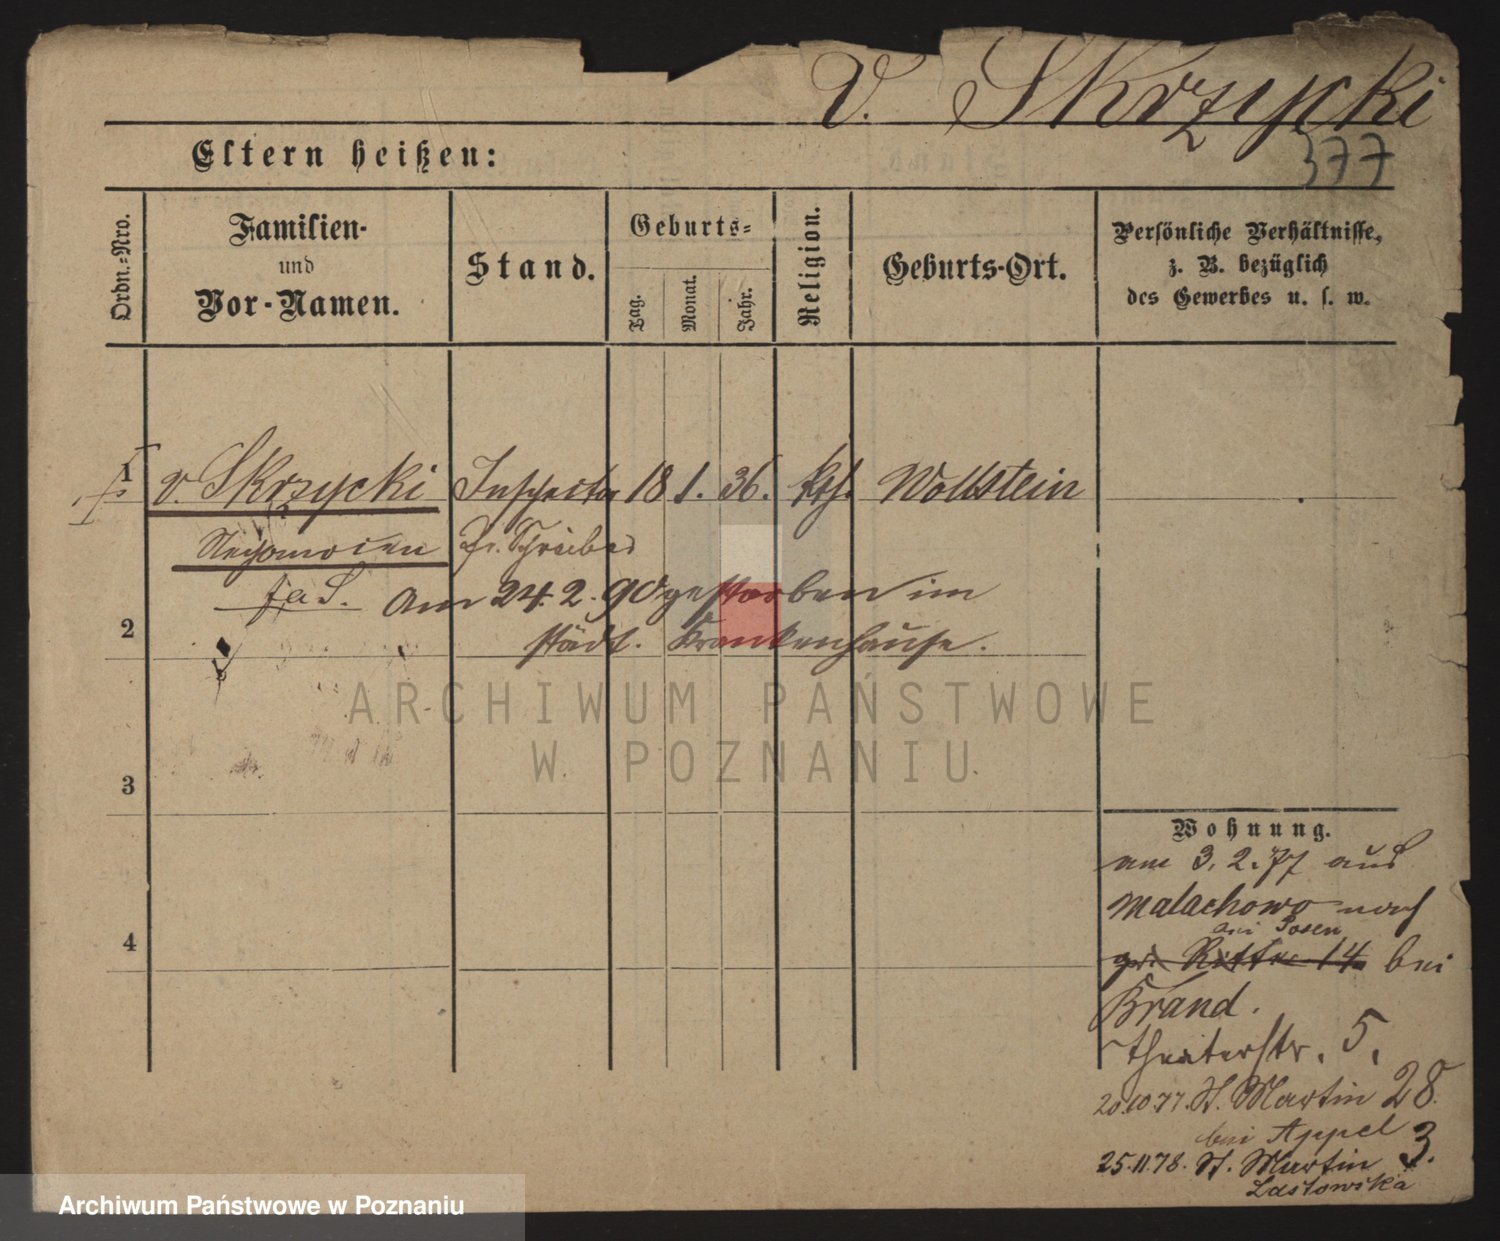 v. Skrzycki
377
Eltern heißen:
Ordn.-Nro.
Familien-
und
Vor-Namen.
Stand.
Geburts-
Tag.
Monat.
Jahr.
Religion.
Geburts-Ort.
Persönliche Verhältnisse,
z. B. bezüglich
des Gewerbes u. s. w.
1 v. Skrzycki Inspector 18 1. 36. kth. Wollstein
Schreiber
am 24. 2. 90 gestorben im
2
städt. Krankenhause.
ARCHIWUM PAŃSTWOWE
W POZNANIU
3
4
Wohnung.
am 3. 2. 77 aus
Malachowo nach
Posen
Ritter 14 bei
Brand.
Theaterstr. 5.
20.10.77. St. Martin 28.
bei Appel
25.11.78. St. Martin 3.
Lastowska
Archiwum Państwowe w Poznaniu